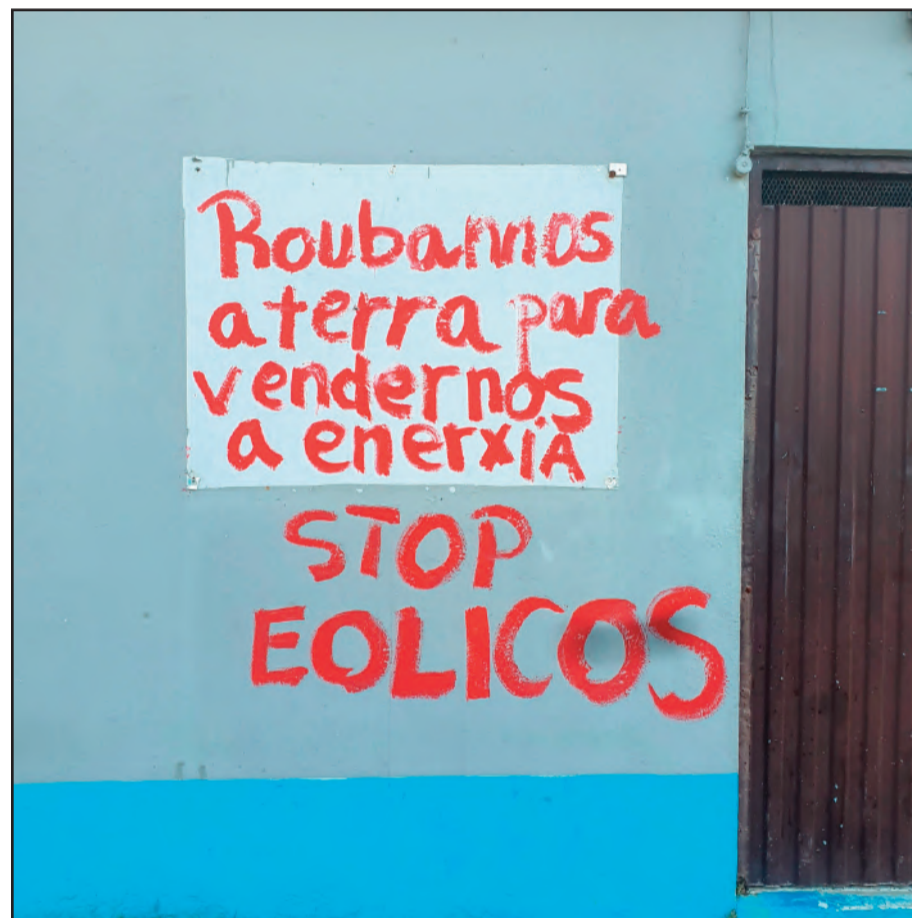 Roubannos
a terra para
vendernos
a enerxía
STOP
EOLICOS